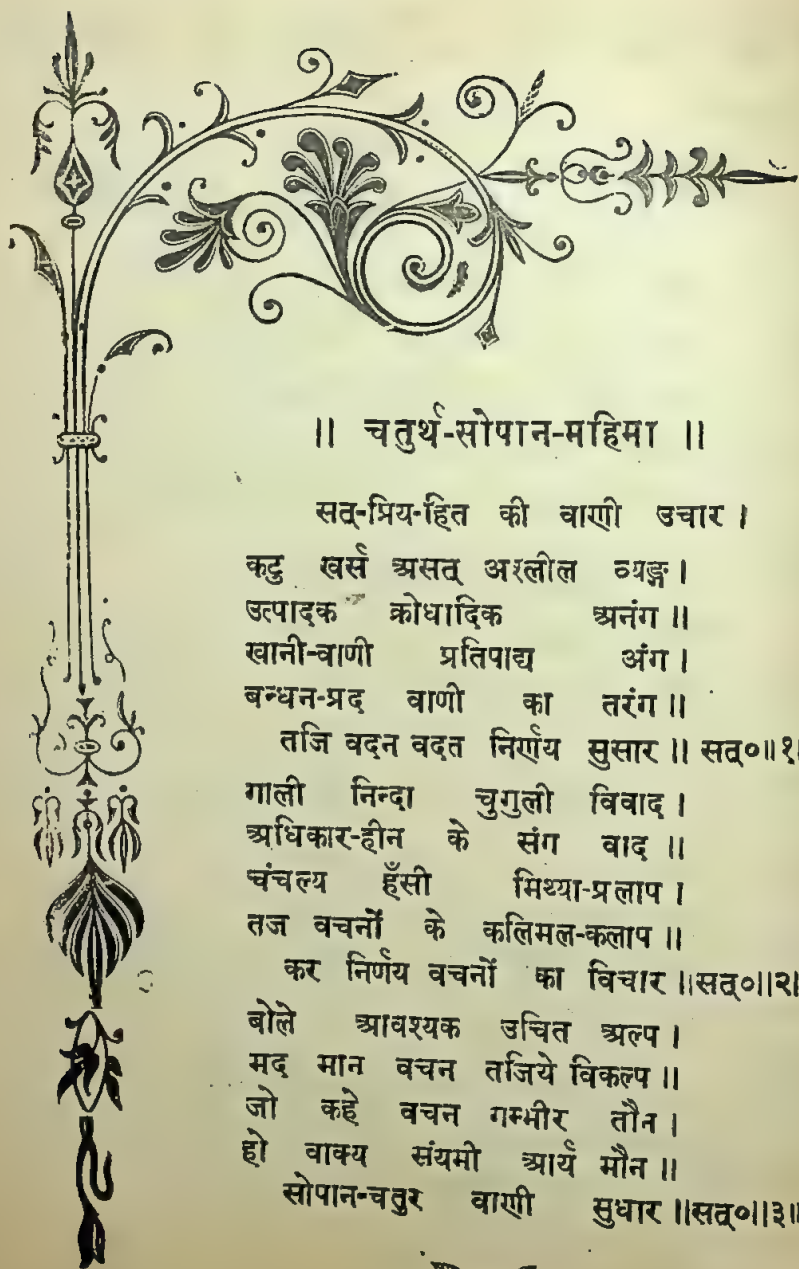 ॥ चतुर्थ-सोपान-महिमा ॥
सत्-प्रिय-हित की वाणी उचार ।
कटु खर्स असत् अश्लील व्यङ्ग ।
उत्पादक क्रोधादिक अनंग ॥
खानी-वाणी प्रतिपाद्य अंग ।
बन्धन-प्रद वाणी का तरंग ॥
तजि वदन वदत निर्णय सुसार ॥ सत्० ॥१।
गाली निन्दा चुगुली विवाद ।
अधिकार-हीन के संग वाद ॥
चंचल्य हँसी मिथ्या-प्रलाप ।
तज वचनों के कलिमल-कलाप ॥
कर निर्णय वचनों का विचार ॥सत्०॥२।
बोले आवश्यक उचित अल्प ।
मद मान वचन तजिये विकल्प ॥
जो कहे वचन गम्भीर तौन ।
हो वाक्य संयमी आर्य मौन ॥
सोपान-चतुर वाणी सुधार ॥सत्०॥३॥